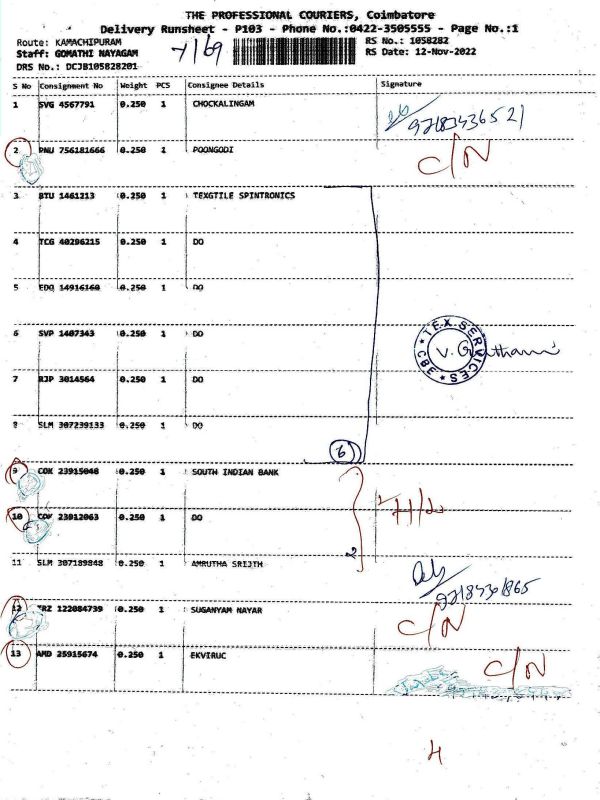 THE PROFESSIONAL COURIERS, Coimbatore
Delivery Runsheet - P103 - Phone No.:0422-3505555 - Page No.:1
Route: KAMACHIPURAM RS No.: 1058282
Staff: GOMATHI NAYAGAM RS Date: 12-Nov-2022
DRS No.: DCJB105828201
S No Consignment No Weight PCS Consignee Details Signature
1 SVG 4567791 0.250 1 CHOCKALINGAM
2 PNU 756181666 0.250 1 POONGODI C/N
3 BTU 1461213 0.250 1 TEXGTILE SPINTRONICS
4 TCG 40296215 0.250 1 DO
5 EDQ 14916160 0.250 1 DO
TEX SERVICES CBE
6 SVP 1407343 0.250 1 DO
7 RJP 3014564 0.250 1 DO
8 SLM 307239133 0.250 1 DO
6
9 COK 23915048 0.250 1 SOUTH INDIAN BANK
10 COK 23912063 0.250 1 DO
2
11 SLM 307189848 0.250 1 AMRUTHA SRIJTH
12 TRZ 122084739 0.250 1 SUGANYAM NAYAR C/N
13 AMD 25915674 0.250 1 EKVIRUC C/N
4